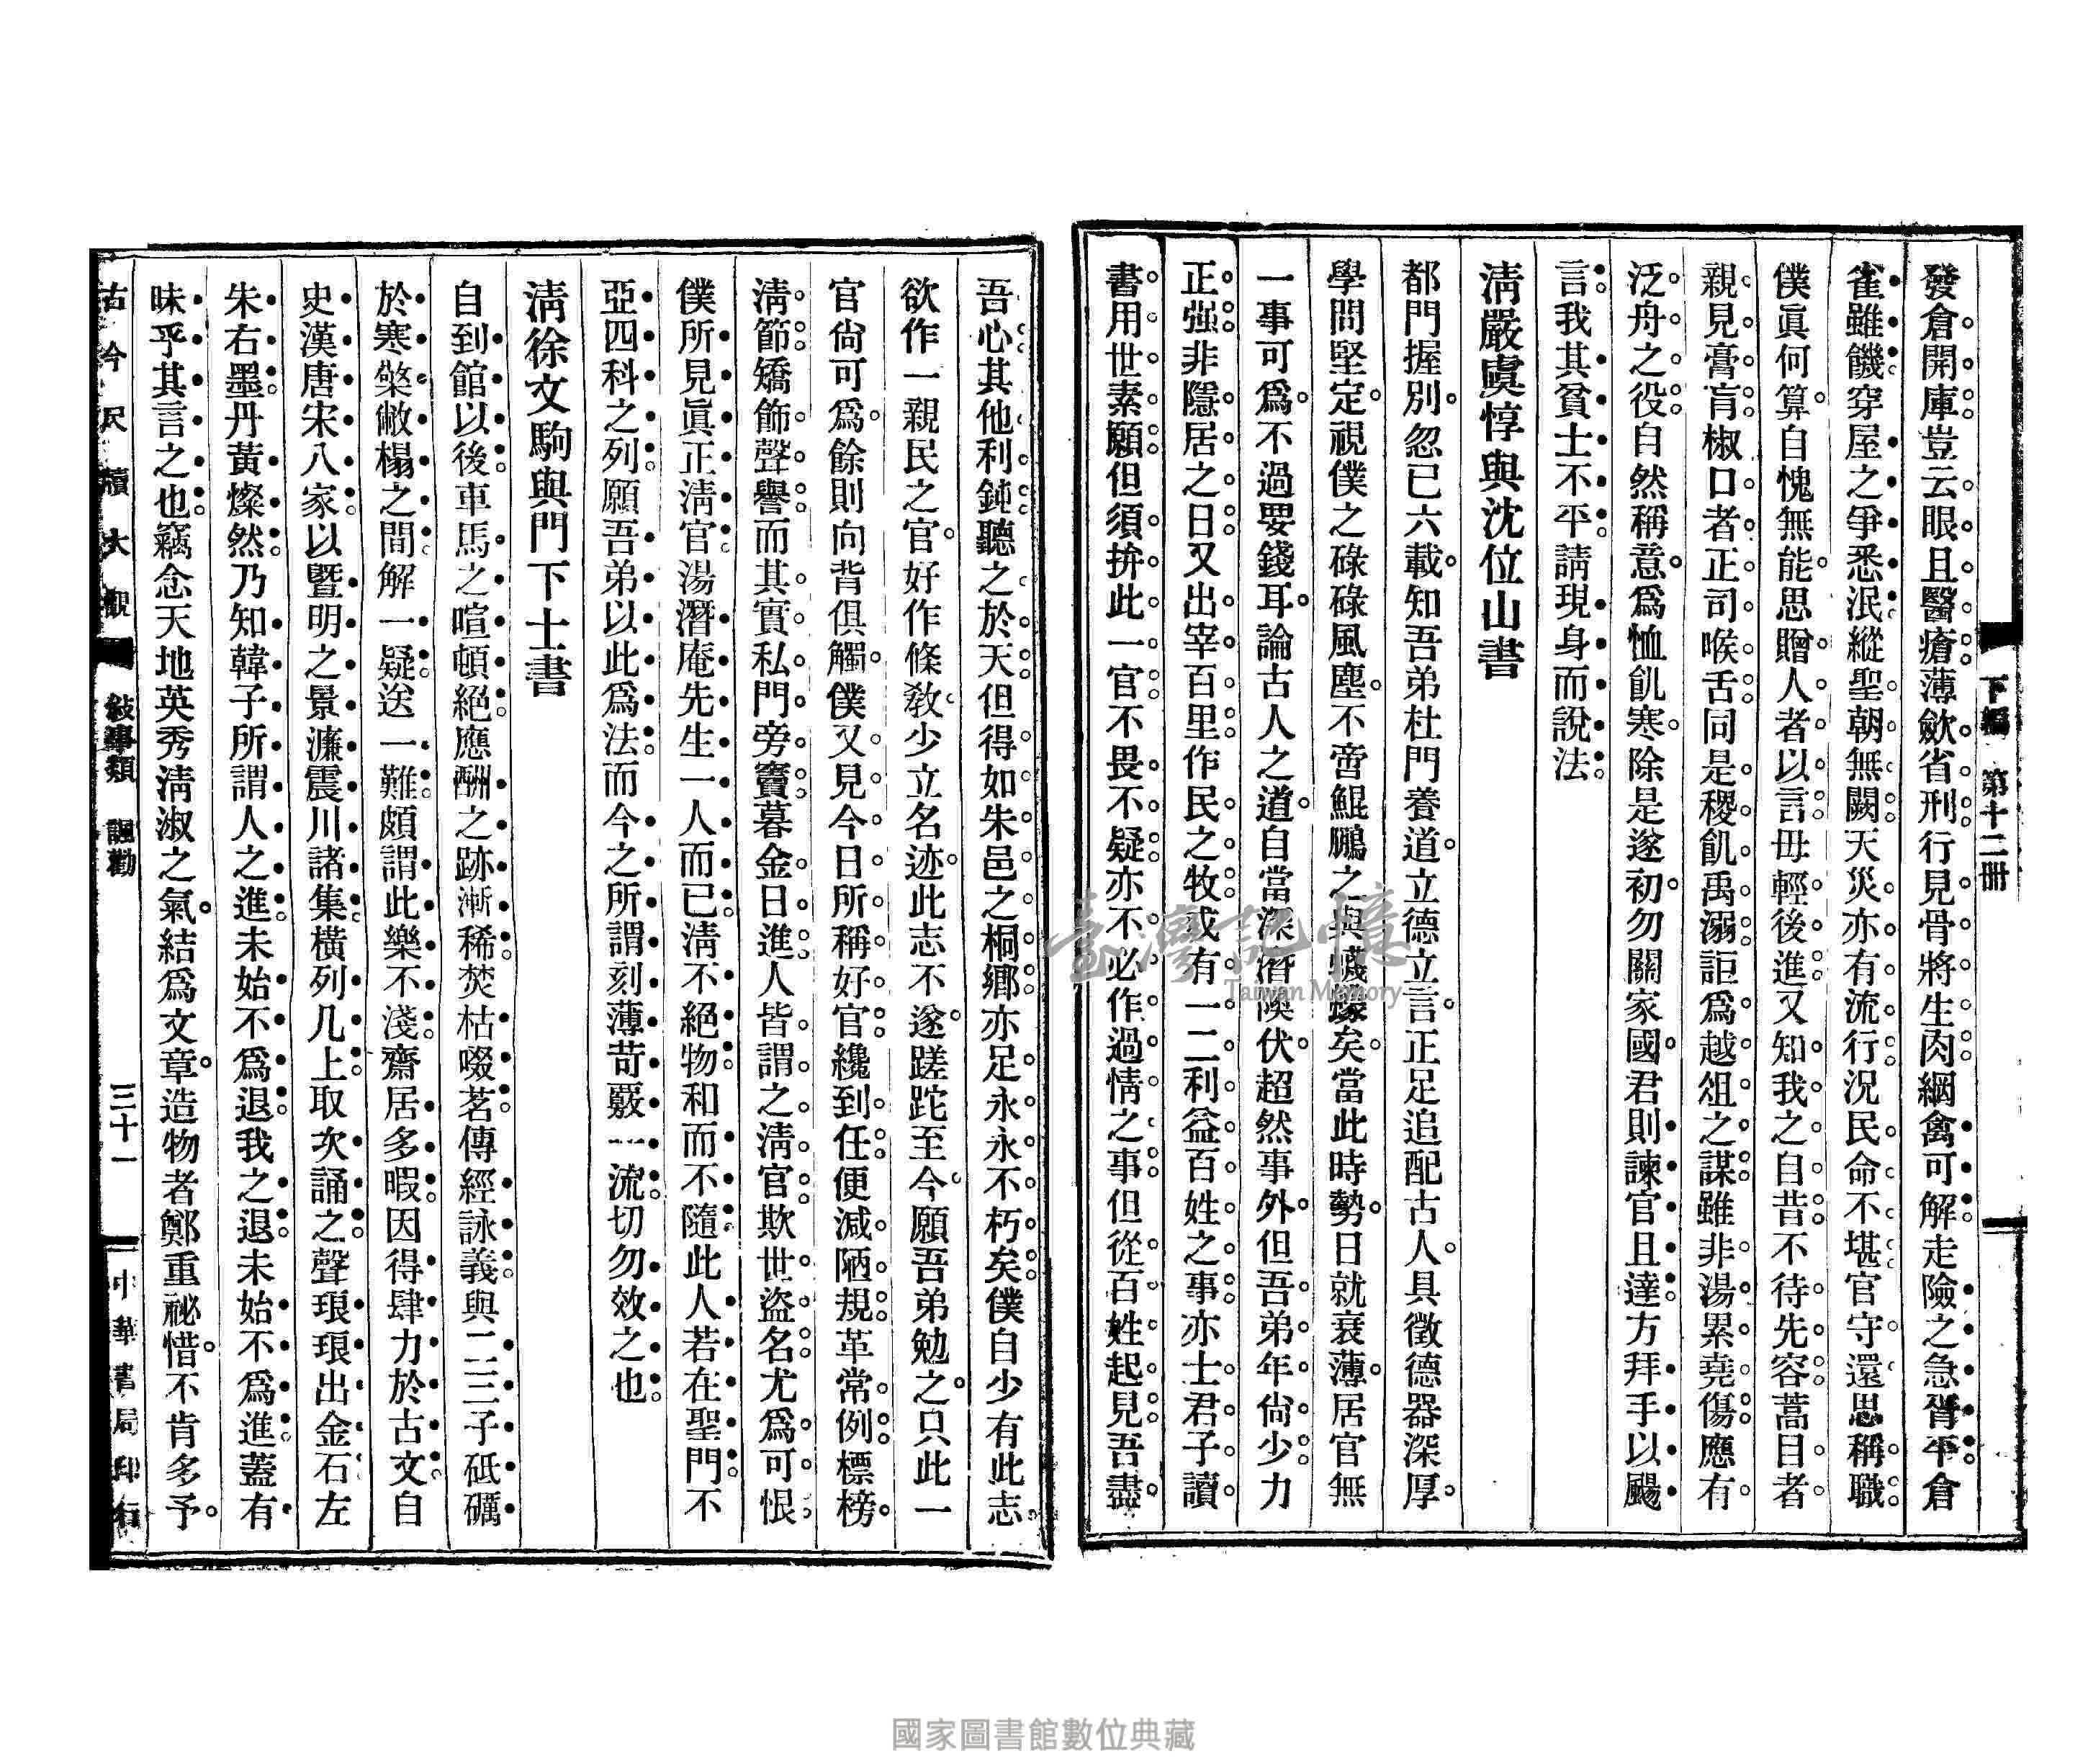 下編 第十二册
發倉開庫豈云眼且醫瘡薄歛省刑行見骨將生肉綱禽可解走險之急胥平倉
雀雖饑穿屋之爭悉泯縱聖朝無闕天災亦有流行況民命不堪官守還思稱職
僕眞何算自愧無能思贈人者以言毋輕後進又知我之自昔不待先容蒿目者
親見膏肓椒口者正司喉舌同是稷飢禹溺詎爲越俎之謀雖非湯累堯傷應有
泛舟之役自然稱意爲恤飢寒除是遂初勿關家國君則諫官且達方拜手以颺
言我其貧士不平請現身而說法
淸嚴虞惇與沈位山書
都門握別忽已六載知吾弟杜門養道立德立言正足追配古人具徵德器深厚
學問堅定視僕之碌碌風塵不啻鯤鵬之與蠛蠓矣當此時勢日就衰薄居官無
一事可爲不過要錢耳論古人之道自當深潛隩伏超然事外但吾弟年尙少力
正强非隱居之日又出宰百里作民之牧或有一二利益百姓之事亦士君子讀
書用世素願但須拚此一官不畏不疑亦不必作過情之事但從百姓起見吾盡
吾心其他利鈍聽之於天但得如朱邑之桐鄕亦足永永不朽矣僕自少有此志
欲作一親民之官好作條敎少立名迹此志不遂蹉跎至今願吾弟勉之只此一
官尙可爲餘則向背俱觸僕又見今日所稱好官纔到任便減陋規革常例標榜
淸節矯飾聲譽而其實私門旁竇暮金日進人皆謂之淸官欺世盜名尤爲可恨
僕所見眞正淸官湯潛庵先生一人而已淸不絕物和而不隨此人若在聖門不
亞四科之列願吾弟以此爲法而今之所謂刻薄苛覈一流切勿效之也
淸徐文駒與門下士書
自到館以後車馬之喧頓絕應酬之跡漸稀焚枯啜茗傳經詠義與二三子砥礪
於寒檠敝榻之間解一疑送一難頗謂此樂不淺齋居多暇因得肆力於古文自
史漢唐宋八家以曁明之景濂震川諸集橫列几上取次誦之聲琅琅出金石左
朱右墨丹黃燦然乃知韓子所謂人之進未始不爲退我之退未始不爲進蓋有
味乎其言之也竊念天地英秀淸淑之氣結爲文章造物者鄭重祕惜不肯多予
古今尺牘大觀 敍事類 諷勸 三十一 中華書局印行
臺灣記憶
Taiwan Memory
國家圖書館數位典藏